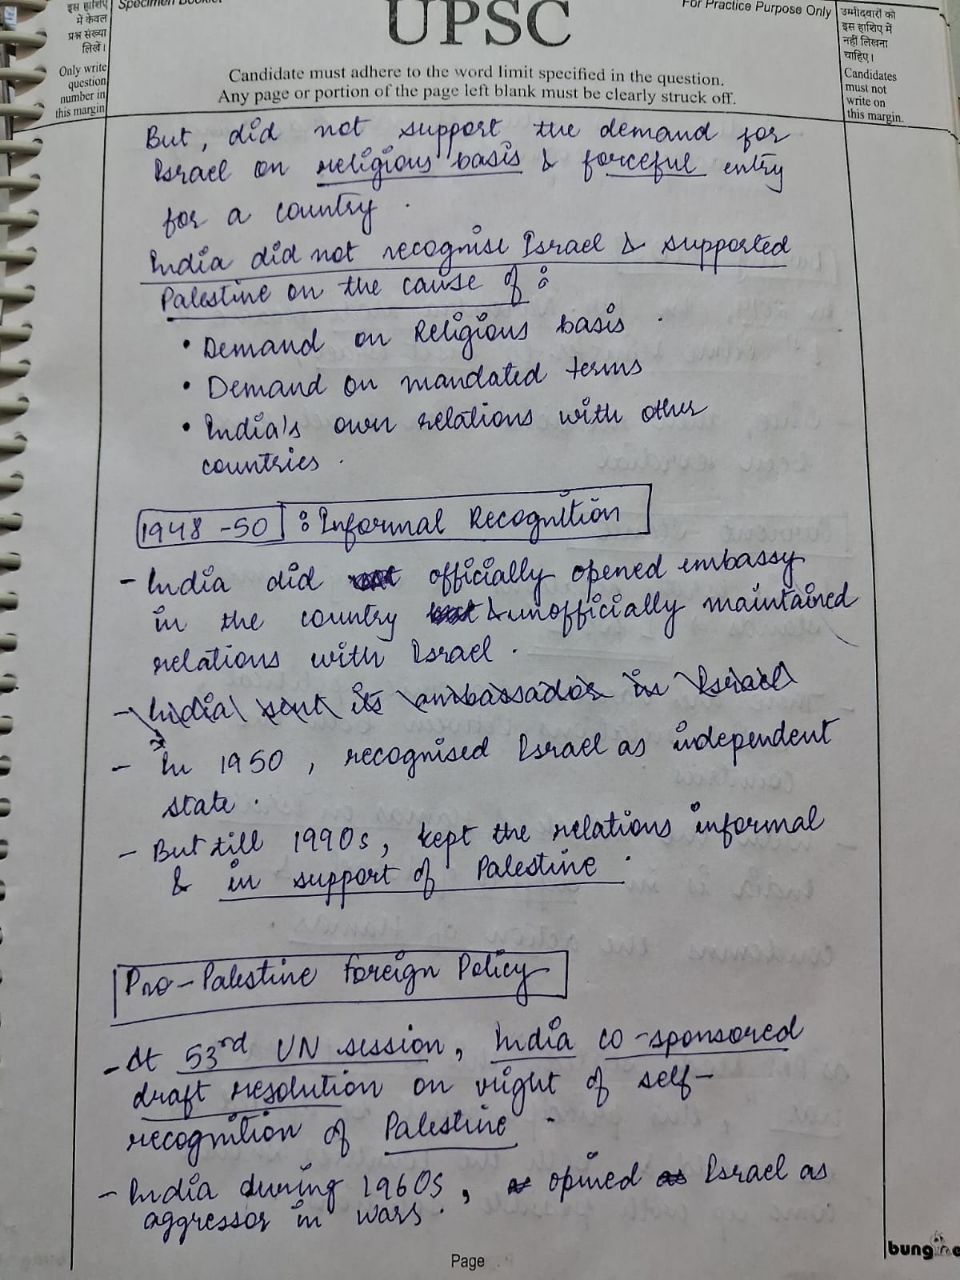 इस हाशिए
में केवल
प्रश्न संख्या
लिखें।
Only write
question
number in
this margin
Specimen Booklet
UPSC
For Practice Purpose Only
उम्मीदवारों को
इस हाशिए में
नहीं लिखना
चाहिए।
Candidates
must not
write on
this margin.
Candidate must adhere to the word limit specified in the question.
Any page or portion of the page left blank must be clearly struck off.
But, did not support the demand for
Israel on religious basis & forceful entry
for a country.
India did not recognise Israel & supported
Palestine on the cause of :
• Demand on Religious basis.
• Demand on mandated terms
• India's own relations with other
countries.
1948-50 : Informal Recognition
- India did officially opened embassy
in the country & unofficially maintained
relations with Israel.
- India sent its ambassador in Israel
- In 1950, recognised Israel as independent
state.
- But till 1990s, kept the relations informal
& in support of Palestine.
Pro-Palestine Foreign Policy
- At 53rd UN session, India co-sponsored
draft resolution on right of self-
recognition of Palestine.
- India during 1960s, opined as Israel as
aggressor in wars.
Page